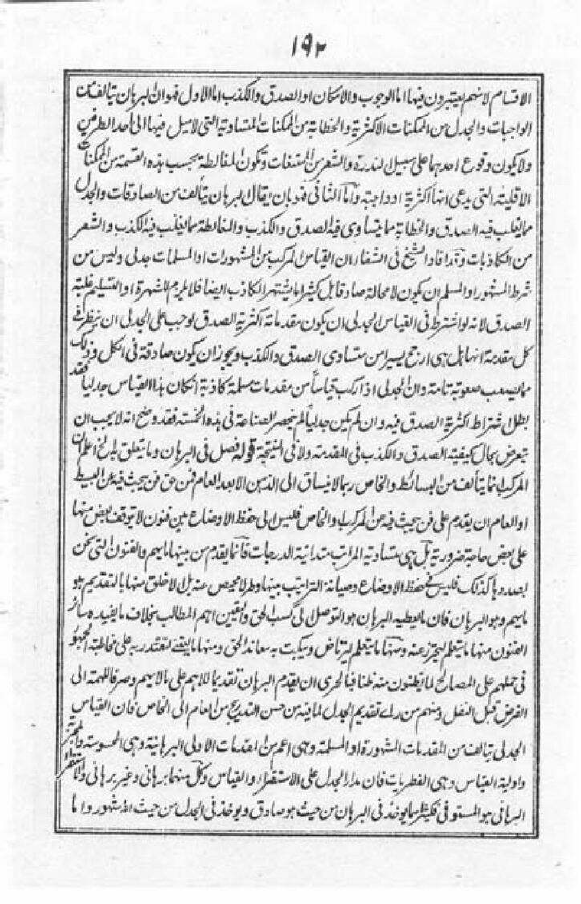 ١٩٢
الاقسام لانهم يعتبرون فيها اما الوجوب والامكان او الصدق والكذب اما الاول فهو ان البرهان يتألف من
الواجبات والجدل من الممكنات الاكثرية والخطابة من الممكنات المتساوية التى لا ميل فيها الى احد الطرفين
ولا يكون وقوع احدهما على سبيل الندرة والشعر من الممتنعات وتكون المغالطة بحسب هذه القسمة من الممكنات
الاقلية التى يدعى انها اكثرية او واجبة واما الثانى فهو بان يقال البرهان يتألف من الصادقات والجدل
مما يغلب فيه الصدق والخطابة مما يتساوى فيه الصدق والكذب والمغالطة مما يغلب فيه الكذب والشعر
من الكاذبات وقد افاد الشيخ فى الشفاء ان القياس المركب من المشهورات او المسلمات جدلى وليس من
شرط المشهور او المسلم ان يكون لا محالة صادقا بل كثيرا ما يشتهر الكاذب ايضا فلا يلزم الشهرة او التسليم غلبة
الصدق لانه لو اشترط فى القياس الجدلى ان يكون مقدماته اكثرية الصدق لوجب على الجدلى ان ينظر فى
كل مقدمة انها هل هى ارجح يسيرا من متساوى الصدق والكذب ويجوز ان يكون صادقة فى الكل وذلك
مما يصعب صعوبة تامة وان الجدلى اذا ركب قياسا من مقدمات مسلمة كاذبة ان كان هذا القياس جدليا فقد
بطل اشتراط اكثرية الصدق فيه وان لم يكن جدليا لم ينحصر الصناعة فى هذه الخمسة فقد وضح انه لا يجب ان
يتعرض بحال كيفية الصدق والكذب فى المقدمة ولا فى النتيجة قوله فصل فى البرهان وما يتعلق به الخ اعلم ان
المركب انما يتألف من البسائط والخاص ربما لا ينساق الى الذهن الا بعد العام فمن حق فن يبحث فيه عن البسيط
او العام ان يقدم على فن يبحث فيه عن المركب او الخاص فليس الى حفظ الاوضاع بين فنون لا يتوقف بعض منها
على بعض حاجة ضرورية بل هى متساوية المراتب متدانية الدرجات فانما يقدم من بينها ما يهم والفنون التى نحن
بصددها كذلك فليس فى حفظ الاوضاع وصيانة التراتيب بينها وطر لا محيص عنه بل الاخلق منها بالتقديم هو
ما يهم وهو البرهان فان ما يعطيه البرهان هو التوصل الى كسب الحق واليقين اهم المطالب بخلاف ما يفيده سائر
الفنون منها ما يتعلم ليتحرز عنه ومنها ما يتعلم ليرتاض ويبكت به معاند الحق ومنها ما يقتنى ليقتدر به على مخاطبة الجمهور
فى حملهم على المصالح لما يظنون منه ظنا فبالحرى ان يقدم البرهان تقديما للاهم على ما لا يهم وصرفا للهمة الى
الفرض قبل النفل ومنهم من راى تقديم الجدل لما فيه من حسن التدريج من العام الى الخاص فان القياس
الجدلى يتألف من المقدمات المشهورة او المسلمة وهى اعم من المقدمات الاولى البرهانية وهى المحسوسة والمجربة
واولية القياس وهى الفطريات فان مدار الجدل على الاستقراء والقياس وكل منهما برهانى وغير برهانى والاستقراء
البرهانى هو المستوفى فكثيرا ما يوخذ فى البرهان من حيث هو صادق ويوخذ فى الجدل من حيث انه مشهور واما